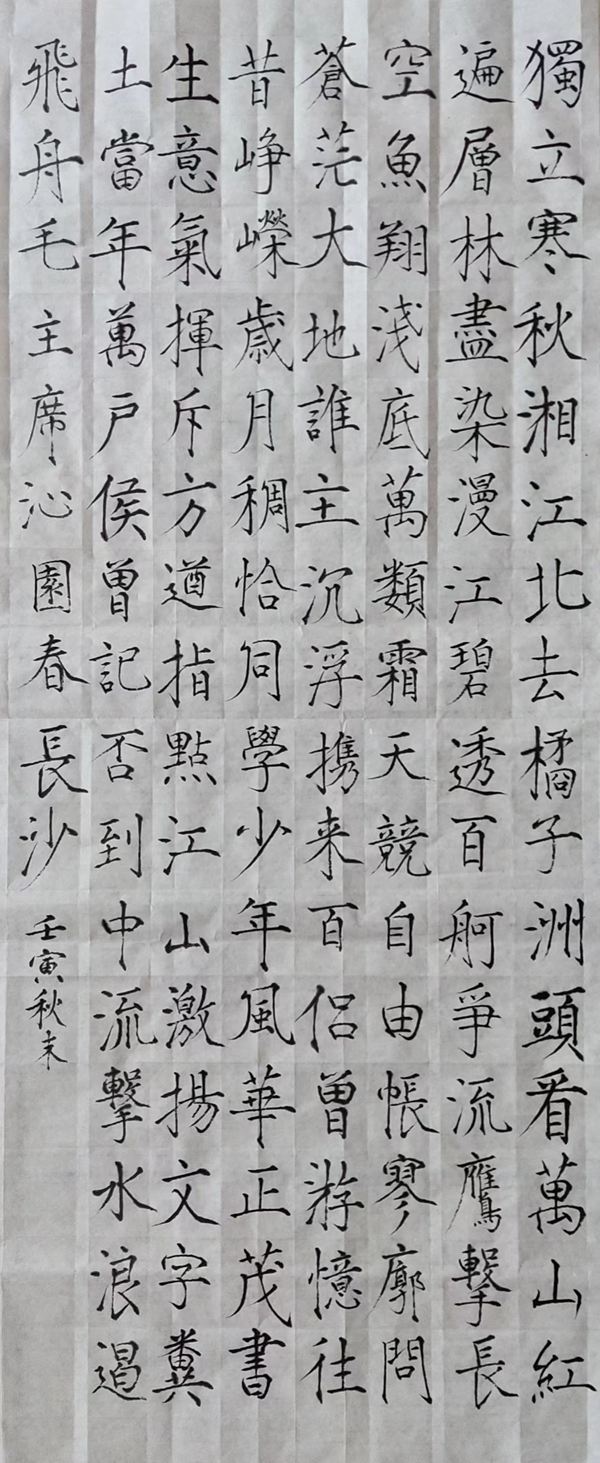 獨立寒秋湘江北去橘子洲頭看萬山紅
遍層林盡染漫江碧透百舸爭流鷹擊長
空魚翔淺底萬類霜天競自由帳寥廓問
蒼茫大地誰主沉浮携来百侣曾游憶往
昔崢嶸歲月稠恰同學少年風華正茂書
生意氣揮斥方遒指點江山激揚文字糞
土當年萬戶侯曾記否到中流擊水浪遏
飛舟毛主席沁園春長沙
壬寅秋末